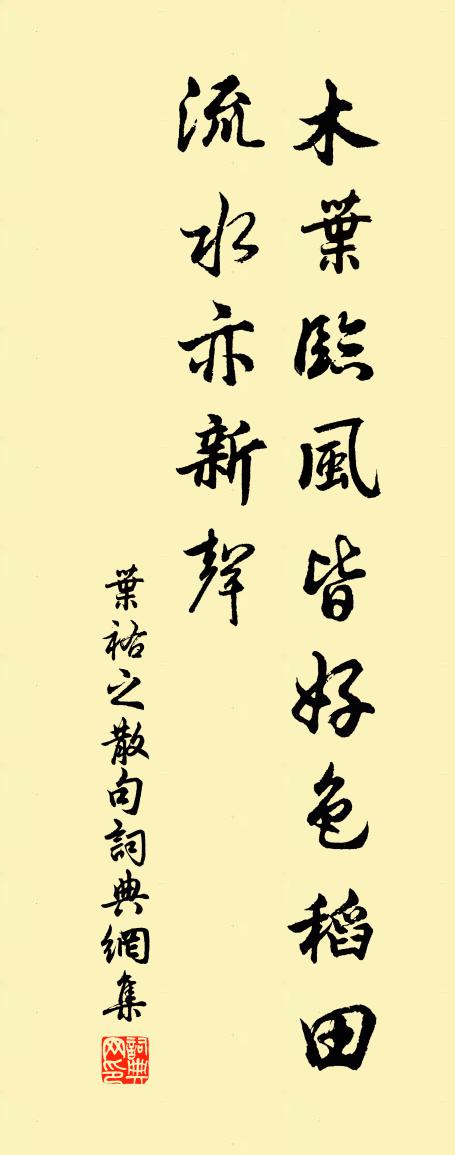 木葉臨風皆好色稻田
流水亦新聲
葉祐之散句詞典網集
詞典网印